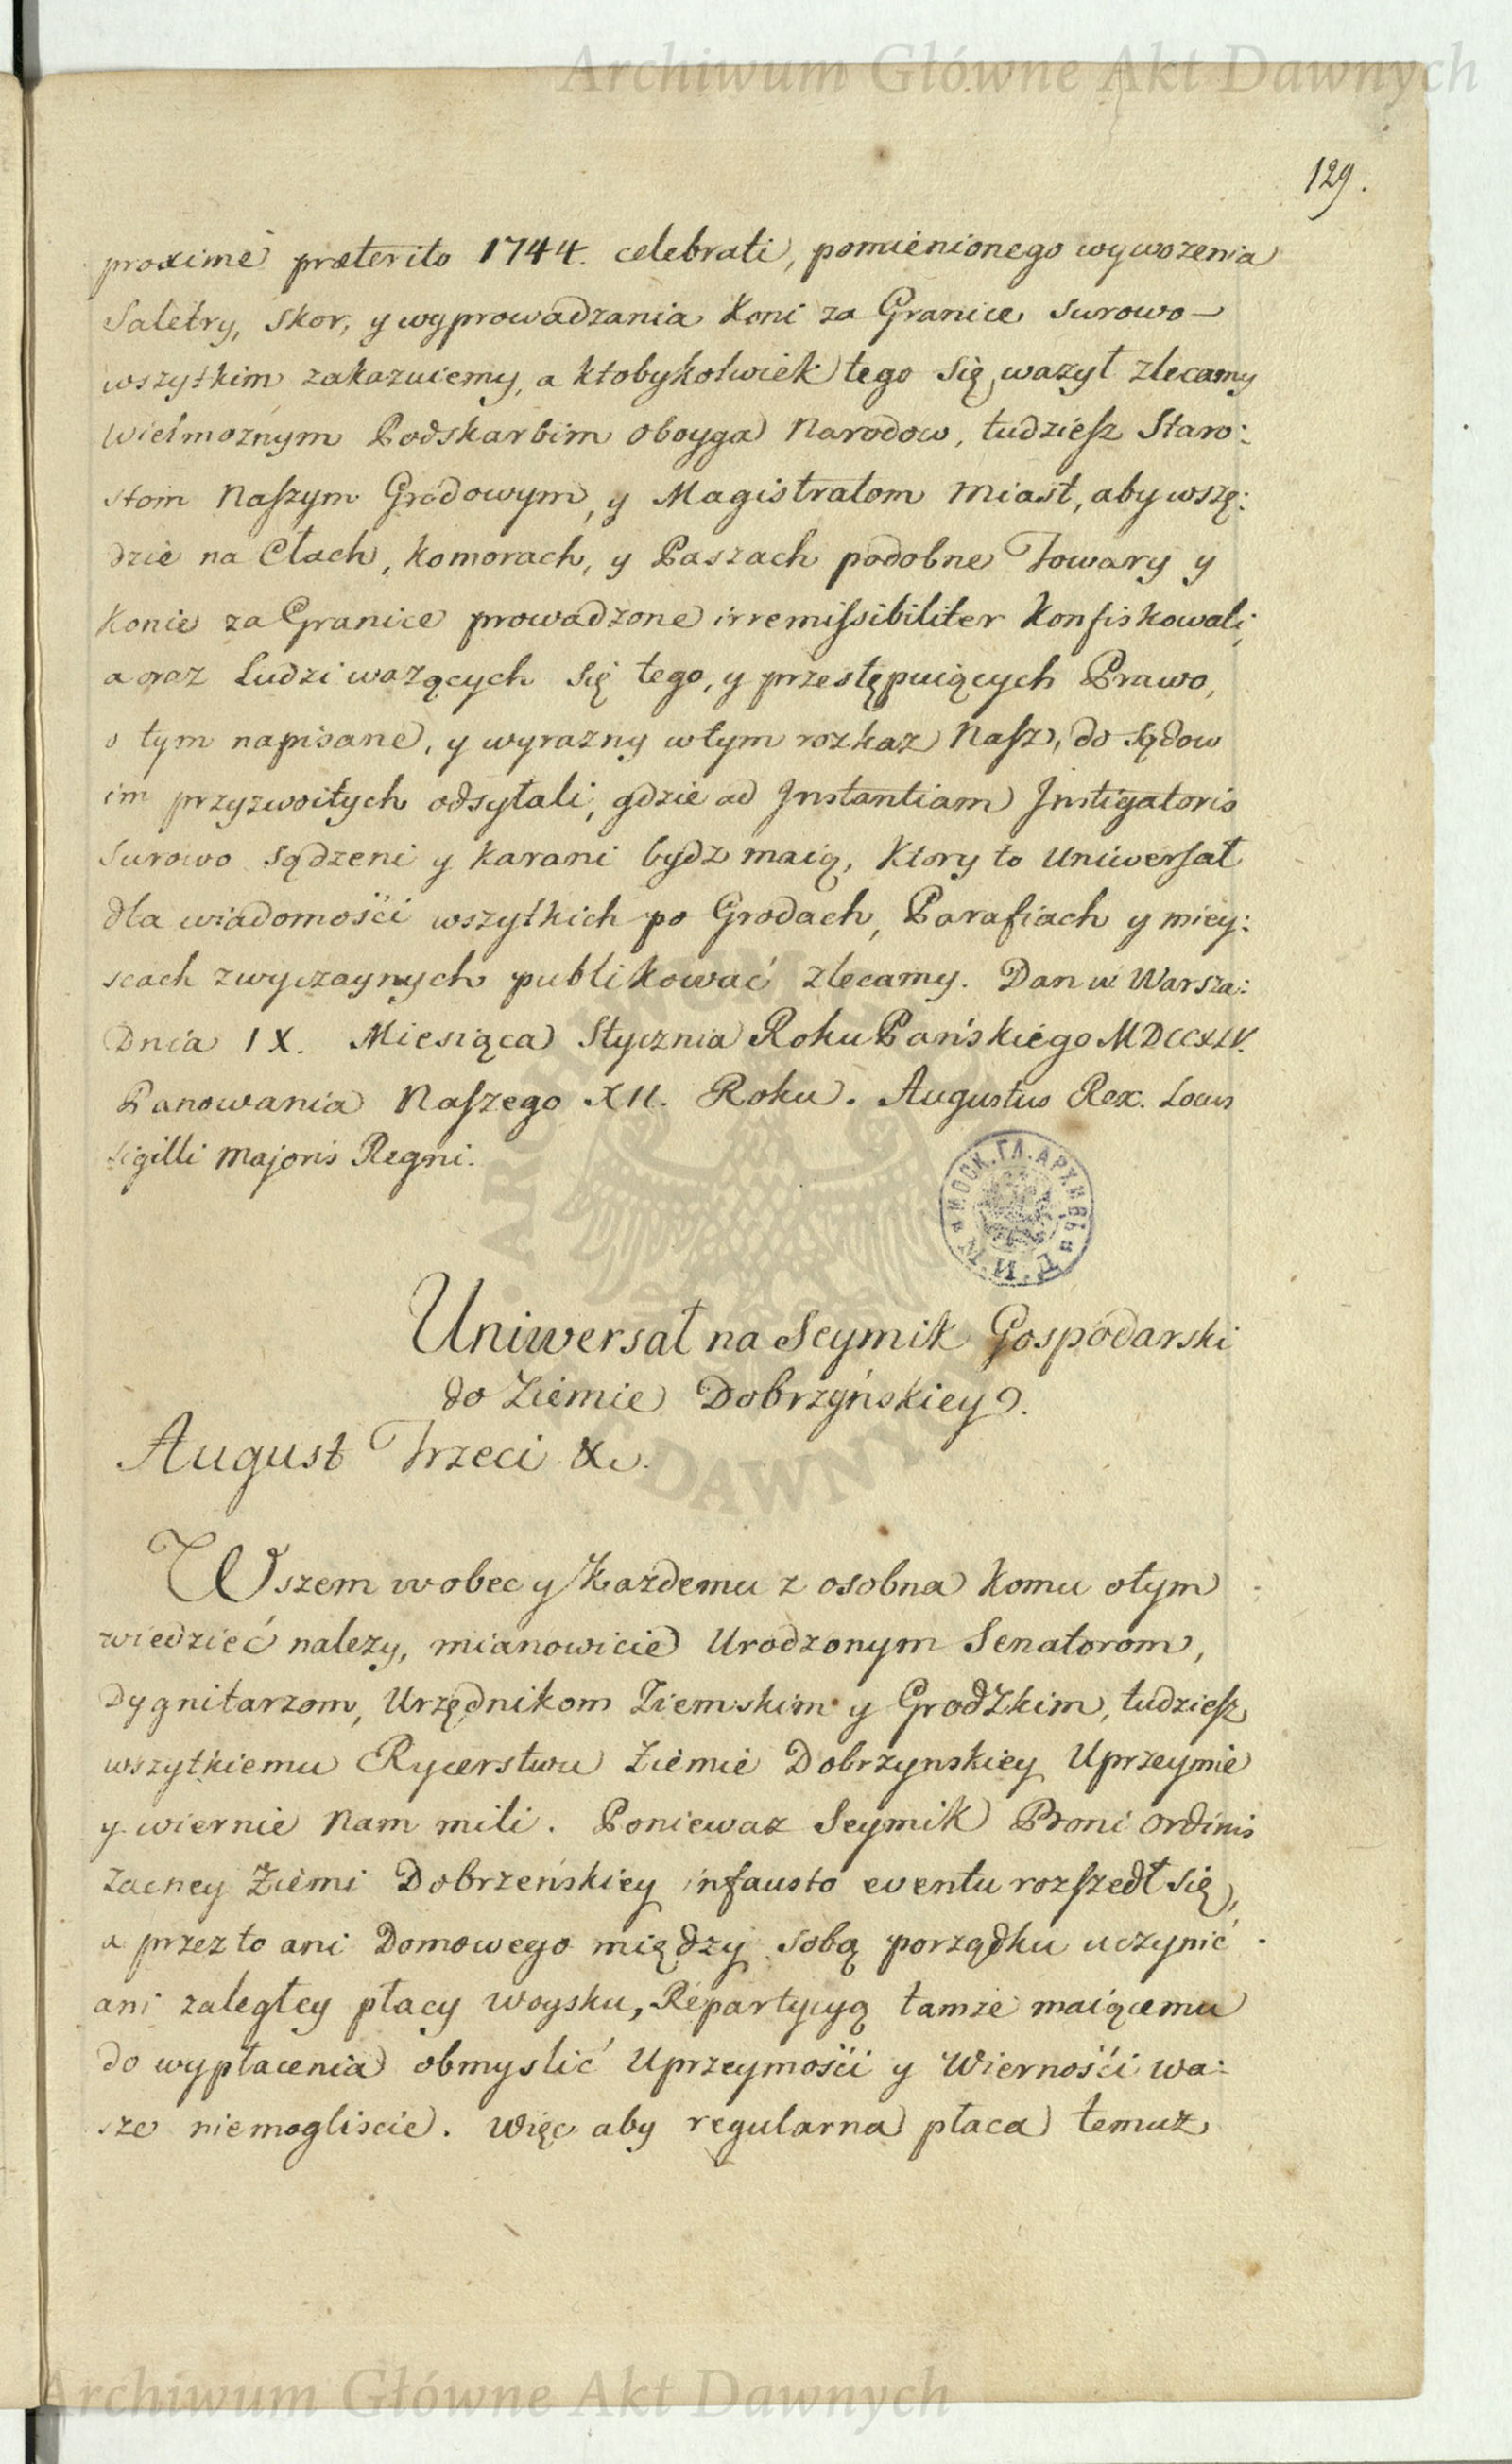 Archiwum Główne Akt Dawnych
129.
proximè præterito 1744. celebrati, pomienionego wywozenia
Saletry, skor, y wyprowadzania koni za Granice surowo—
wszytkim zakazuiemy, a ktobykolwiek tego się wazył zlecamy
Wielmoznym Podskarbim oboyga Narodow, tudzieſz Staro:
stom Naſzym Grodowym, y Magistratom Miast, aby wszę:
dzie na Cłach, komorach, y Paszach podobne Towary y
konie za Granice prowadzone irremiſsibiliter konfiskowali,
a oraz Ludzi wazących się tego, y przestępuiących Prawo,
o tym napisane, y wyrazny w tym rozkaz Naſz, do sądow
im przyzwoitych odsyłali, gdzie ad Jnstantiam Jnstigatoris
surowo sądzeni y karani bydz maią, ktory to Uniwerſał
dla wiadomości wszytkich po Grodach, Parafiach y miey:
scach zwyczaynych publikować zlecamy. Dan w Warsza:
Dnia IX. Miesiąca Stycznia Roku Pańskiego MDCCXLV.
Panowania Naſzego XII. Roku. Augustus Rex. Locus
sigilli majoris Regni.
МОСК.ГЛ.АРХИВЪ
М.И.Д.
Uniwersał na Seymik Gospodarski
do Ziemie Dobrzyńskiey.
August Trzeci &c.
Wszem wobec y kazdemu z osobna komu o tym
wiedzieć nalezy, mianowicie Urodzonym Senatorom,
Dygnitarzom, Urzędnikom Ziemskim y Grodzkim, tudzieſz
wszytkiemu Rycerstwu Ziemie Dobrzynskiey Uprzeymie
y wiernie Nam mili. Poniewaz Seymik Boni ordinis
zacney Ziemi Dobrzeńskiey infausto eventu rozſzedł się,
a przez to ani Domowego między sobą porządku uczynić
ani zaległey płacy woysku, Repartycyą tamze maiącemu
do wypłacenia obmyslić Uprzeymości y Wierności wa:
sze niemogliscie. Więc aby regularna płaca temuz
ARCHIWUM
DAWNYCH
Archiwum Główne Akt Dawnych